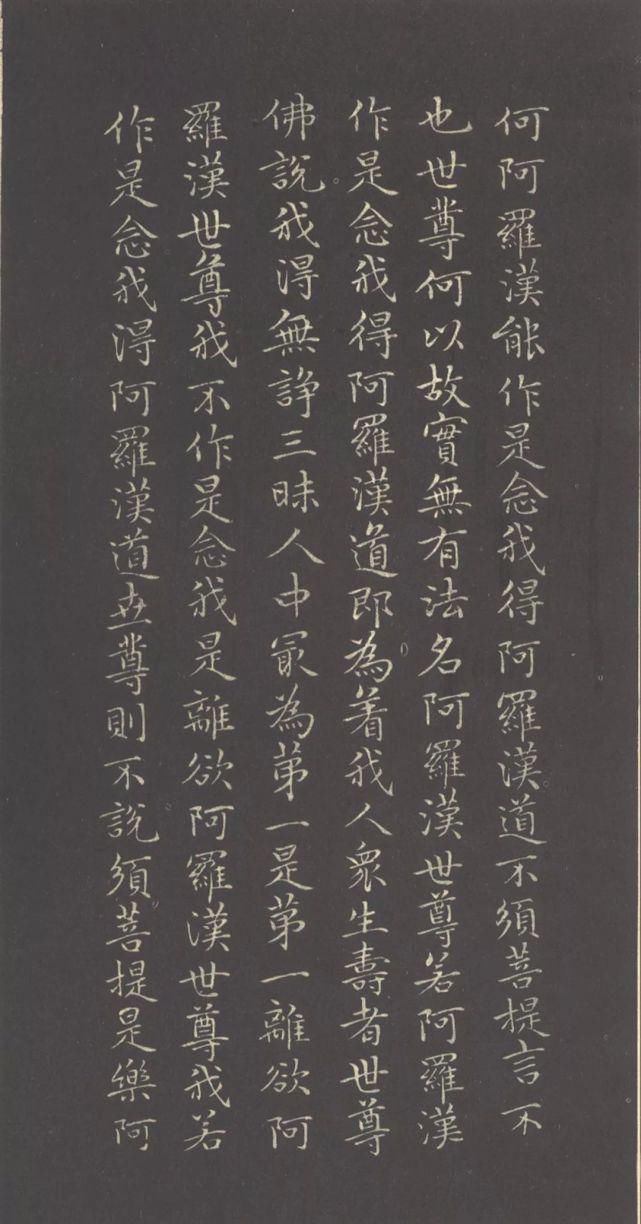 何阿羅漢能作是念我得阿羅漢道不須菩提言不
也世尊何以故實無有法名阿羅漢世尊若阿羅漢
作是念我得阿羅漢道即為着我人衆生壽者世尊
佛說我淂無諍三昧人中冣為苐一是苐一離欲阿
羅漢世尊我不作是念我是離欲阿羅漢世尊我若
作是念我淂阿羅漢道世尊則不說須菩提是樂阿